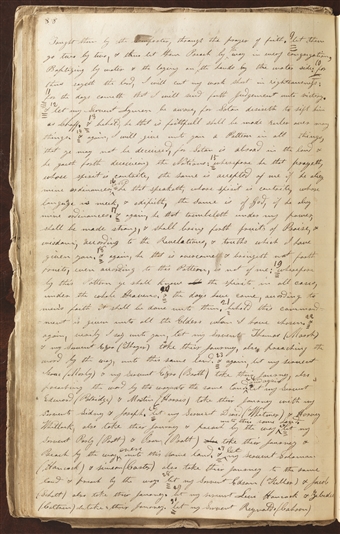 88
taught them by the Comforter, through the prayer of faith. & let them
go two by two, & thus let them preach by the way in every congregation,
Baptizing by water & the laying on of the hands by the water side, for
thus sayeth the Lord, I will cut my work short in righteousness,
for the days cometh that I will send forth Judgement unto victory.
& let my servent Lyman be aware, for Satan desireth to sift him
as chaff. & behold, he that is faithfull shall be made ruler over many
things. & again, I will give unto you a Pattern in all things,
that ye may not be deceived, for Satan is abroad in the Land &
he goeth forth deceiving the Nations. wherefore he that prayeth
whose spirit is contrite, the same is accepted of me if he obey
mine ordinances. he that speaketh, whose spirit is contrite, whose
language is meek, & edifieth, the same is of God, if he obey
mine ordinances. & again, he that trembleth under my power,
shall be made strong, & shall bring forth fruits of Praise, &
wisdom, according to the Revelations, & truths which I have
given you. & again, he that is overcome & bringeth not forth
fruits, even according to this Pattern, is not of me. wherefore
by this Pattern ye shall know the spirits, in all cases,
under the whole Heavens. & the days have come, according to
mens faith it shall be done unto them. behold this command-
ment is given unto all the Elders whom I have chosen. &
again, verily I say unto you, let my servent Thomas (Marsh)
& my servent Ezra (Thayer) take their journey, also, preaching the
word by the way, unto this same land. & again, let my servent
Isaac (Morly) & my servent Ezra (Booth) take their journey, also
preaching the word by the way unto the same land. let my servents
Edward (Patridge) & Martin (Harris) take their journey with my
servents Sidney & Joseph. let my servent David (Whitmer) & Harvey
Whitlock, also take their journey & preach by the way unto this same land. let my
servent Parly (Pratt) & Orson (Pratt) take their journey &
Preach by the way, unto this same land. & let my servent Solomon
Hancock, & Simeon (Carter) also take their journey to the same
land & preach by the way. let my servent Edson (Fuller) & Jacob
Scott, also take their journey. let my servent Levi Hancock & Zebedee
(Coltrin) take their journey. let my servent Reynolds (Cahoon)